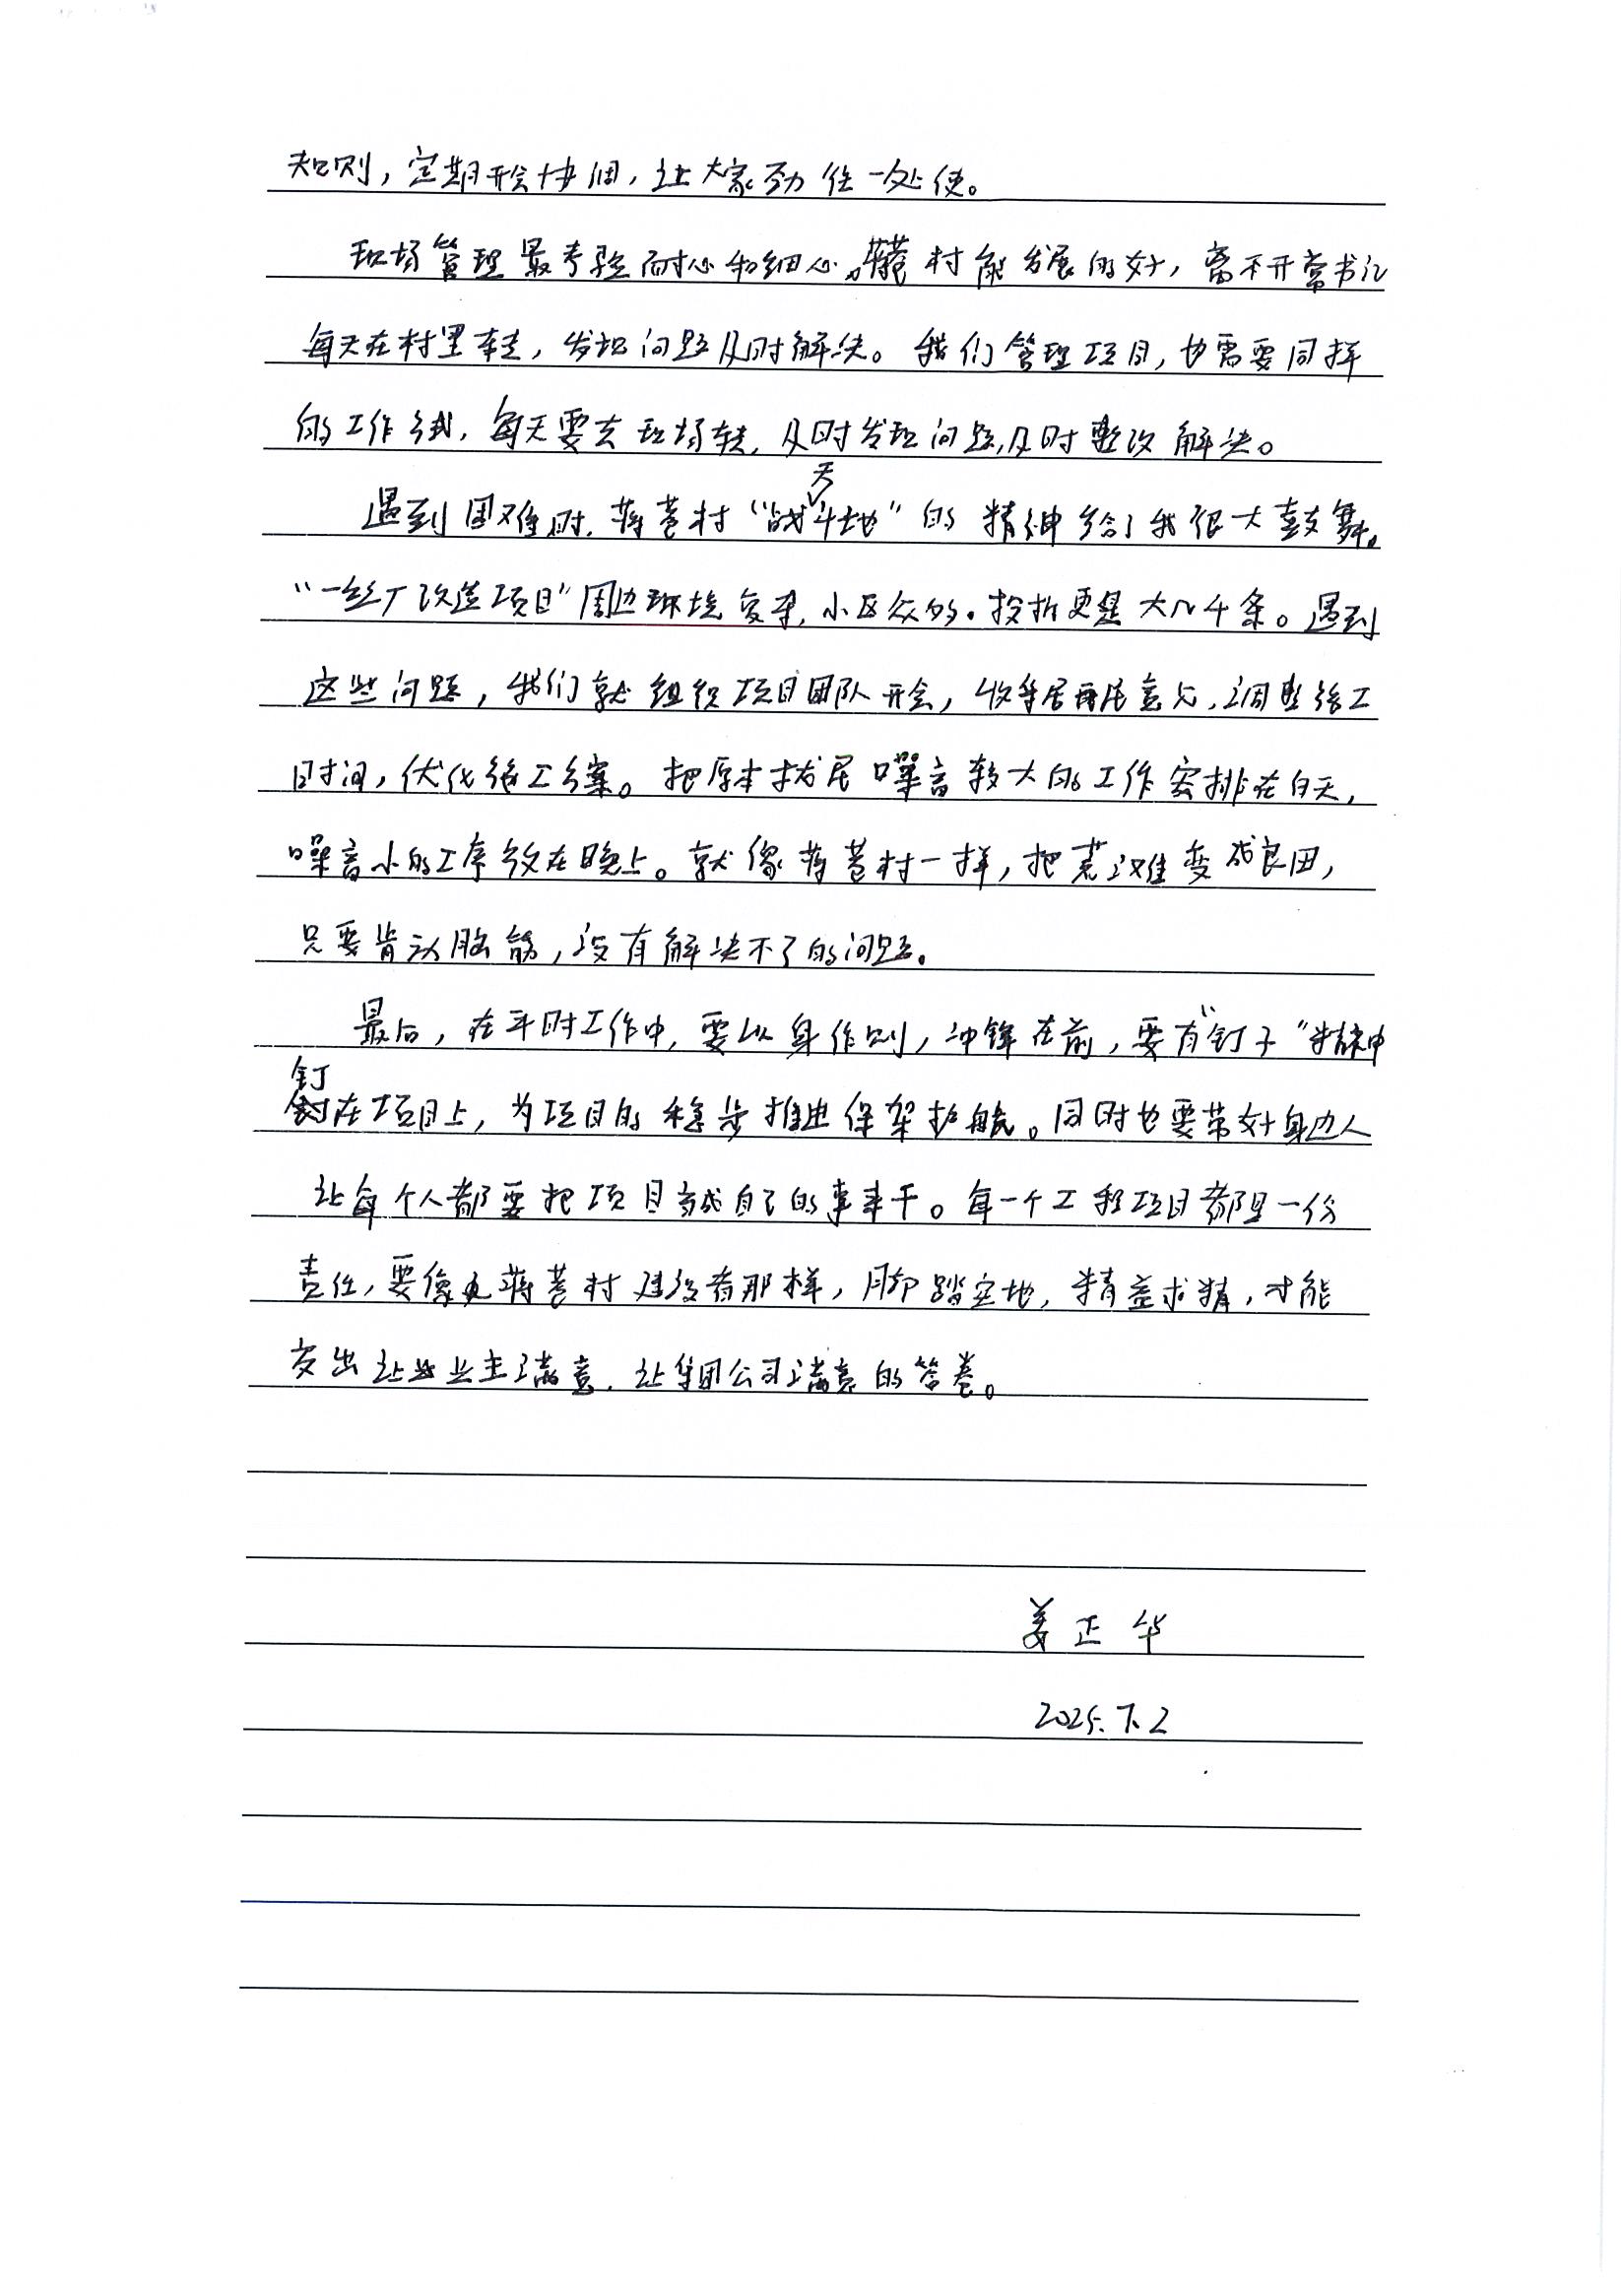 规则，定期开会协调，让大家劲往一处使。
现场管理最考验耐心和细心。蒋巷村能发展的好，离不开常书记
每天在村里转，发现问题及时解决。我们管理项目，也需要同样
的工作方式，每天要去现场转，及时发现问题，及时整改解决。
遇到困难时，蒋巷村“战天斗地”的精神给了我很大鼓舞。
“一丝厂改造项目”周边环境复杂，小区众多。投诉更是大几千条。遇到
这些问题，我们就组织项目团队开会，收集居民意见，调整施工
时间，优化施工方案。把原本扰民噪音较大的工作安排在白天，
噪音小的工序放在晚上。就像蒋巷村一样，把荒滩变成良田，
只要肯动脑筋，没有解决不了的问题。
最后，在平时工作中，要以身作则，冲锋在前，要有“钉子”精神
钉在项目上，为项目的稳步推进保驾护航。同时也要带好身边人
让每个人都要把项目当成自己的事来干。每一个工程项目都是一份
责任，要像蒋巷村建设者那样，脚踏实地，精益求精，才能
交出让业主满意，让集团公司满意的答卷。
姜正华
2025.7.2